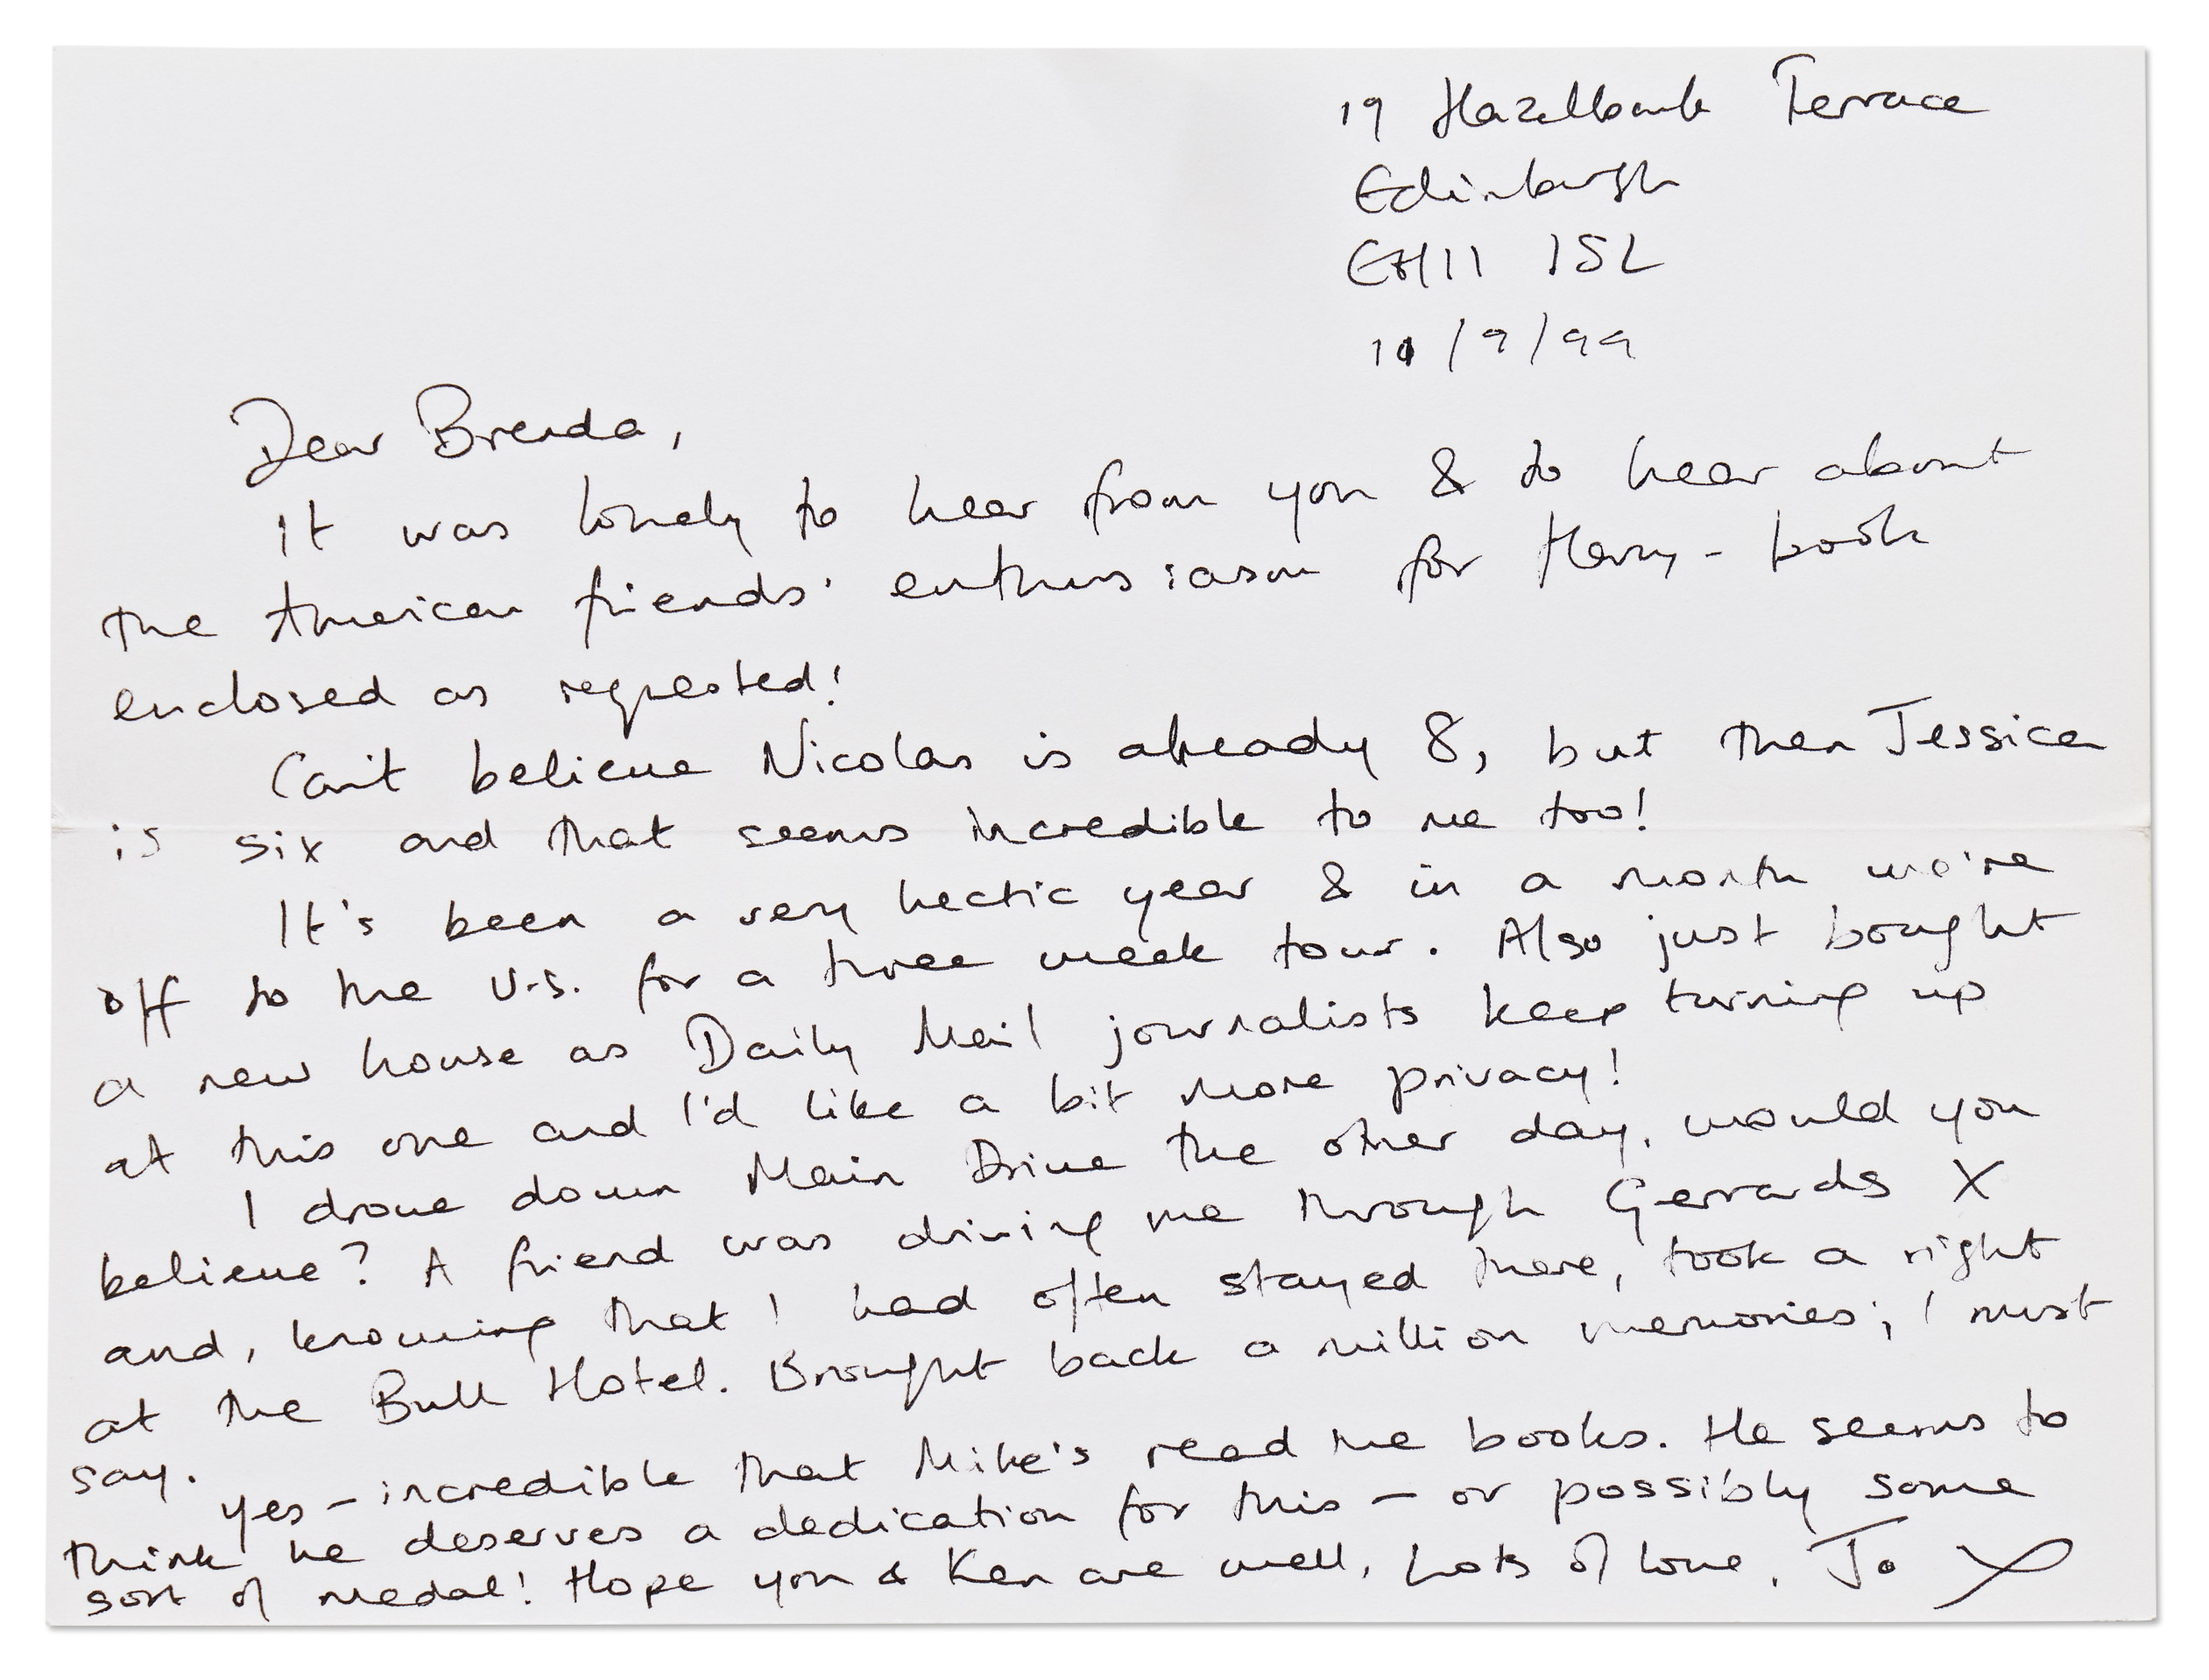 19 Hazelbank Terrace
Edinburgh
EH11 1SL
11/9/99
Dear Brenda,
It was lovely to hear from you & to hear about
the American friends' enthusiasm for Harry - book
enclosed as requested!
Can't believe Nicolas is already 8, but then Jessica
is six and that seems incredible to me too!
It's been a very hectic year & in a month we're
off to the U.S. for a three week tour. Also just bought
a new house as Daily Mail journalists keep turning up
at this one and I'd like a bit more privacy!
I drove down Main Drive the other day, would you
believe? A friend was driving me through Gerrards X
and, knowing that I had often stayed there, took a right
at the Bull Hotel. Brought back a million memories; I must
say.
Yes - incredible that Mike's read the books. He seems to
think he deserves a dedication for this - or possibly some
sort of medal! Hope you & Ken are well, Lots of love, Jo X